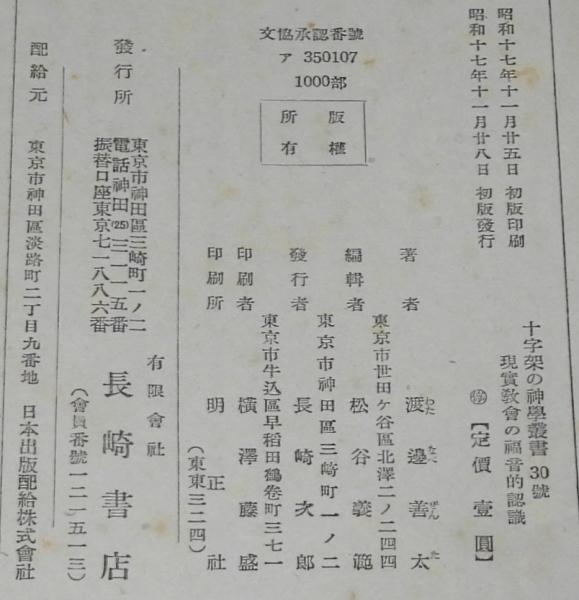 昭和十七年十一月廿五日 初版印刷
昭和十七年十一月廿八日 初版發行
十字架の神學叢書 30號
現實教會の福音的認識
㊕【定價壹圓】
文協承認番號
ア 350107
1000部
版權
所有
著者 渡邊善太
わたなべぜんた
東京市世田ケ谷區北澤二ノ二四四
編輯者 松谷義範
東京市神田區三崎町一ノ二
發行者 長崎次郎
東京市牛込區早稻田鶴卷町三七一
印刷者 橫澤藤盛
印刷所 明正社
(東東三二四)
發行所
東京市神田區三崎町一ノ二
電話神田(25)三一一五番
振替口座東京七一八八六番
有限會社
長崎書店
(會員番號一二一五一三)
配給元 東京市神田區淡路町二丁目九番地 日本出版配給株式會社